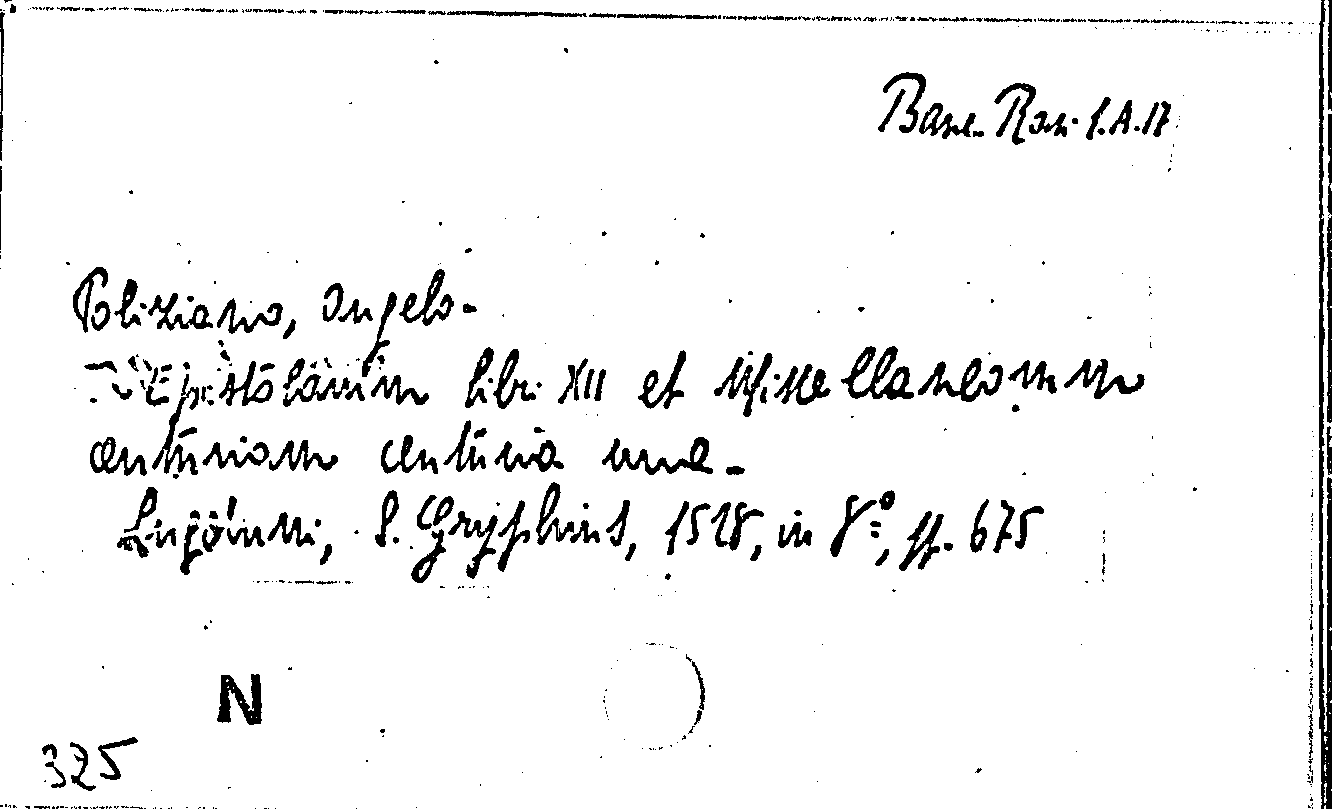 Poliziano, Angelo.
Epistolarum libri XII et Miscellaneorum
centuriam centuria una.
Lugduni, S. Gryphius, 1528, in 8°, ff. 675
N
325